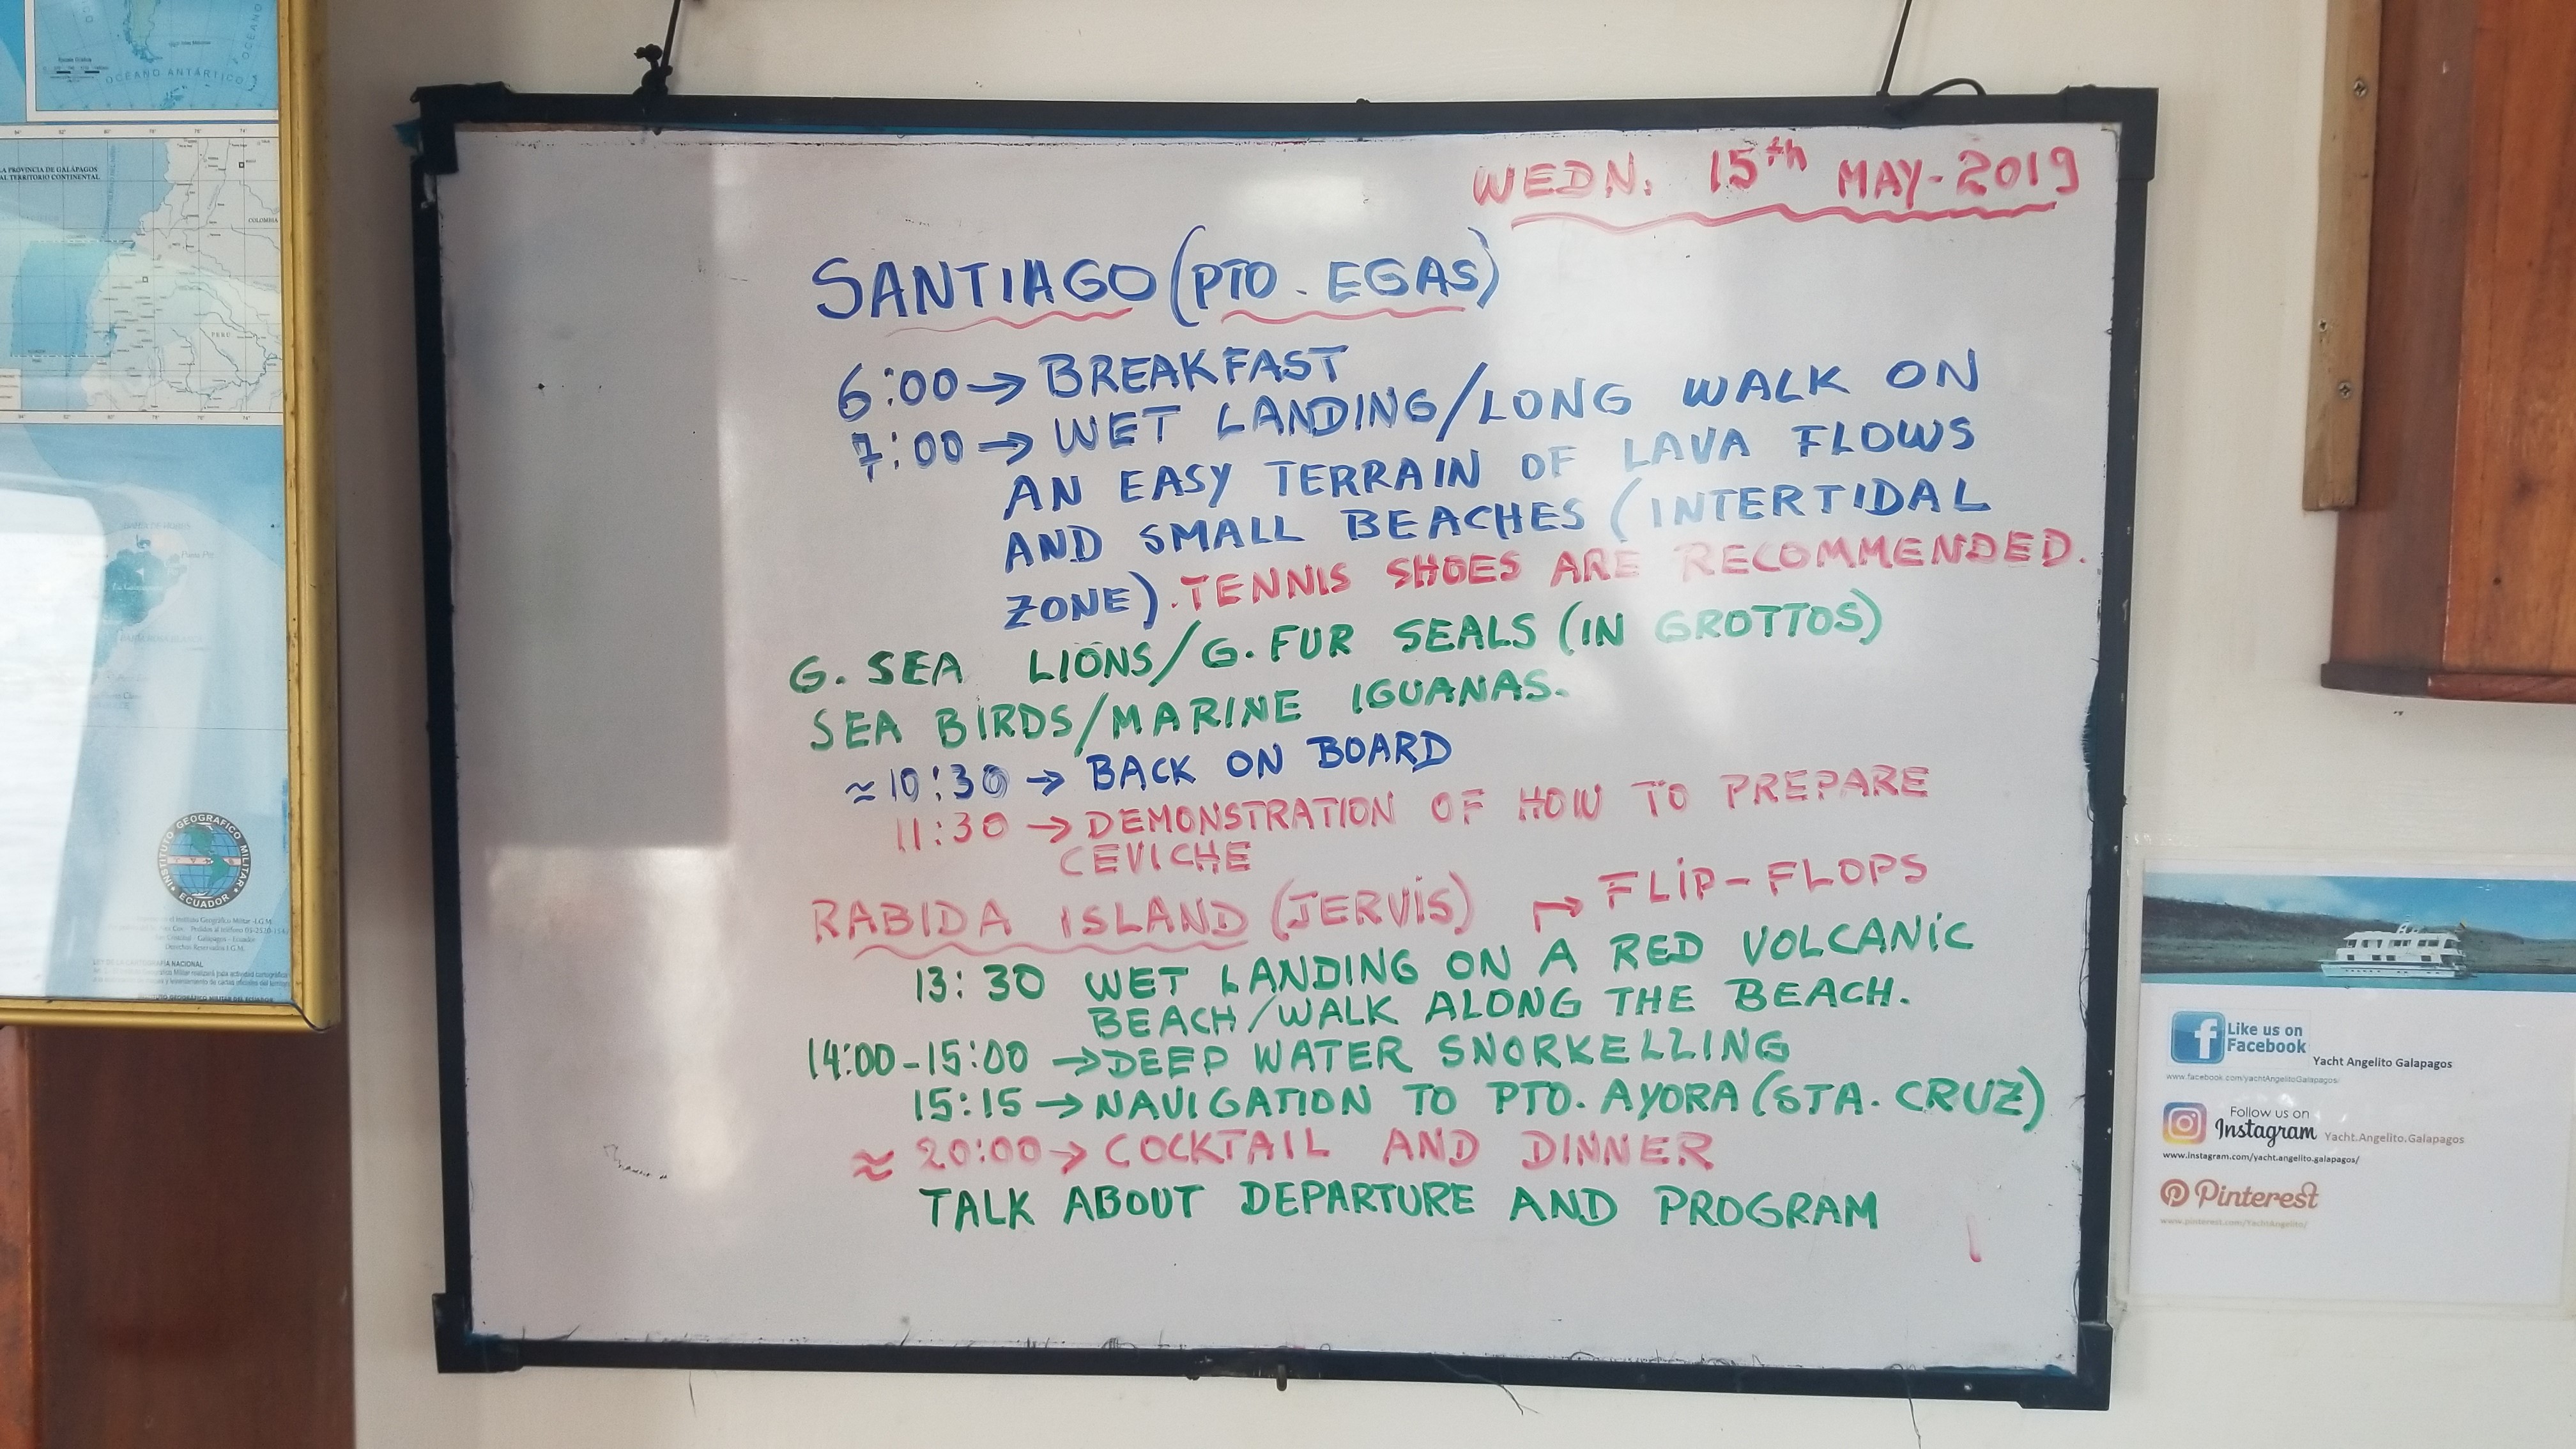 OCÉANO ANTÁRTICO
LA PROVINCIA DE GALÁPAGOS
AL TERRITORIO CONTINENTAL
COLOMBIA
PERU
INSTITUTO GEOGRAFICO MILITAR
ECUADOR
WEDN. 15th MAY-2019
SANTIAGO (PTO. EGAS)
6:00 → BREAKFAST
7:00 → WET LANDING/LONG WALK ON
AN EASY TERRAIN OF LAVA FLOWS
AND SMALL BEACHES (INTERTIDAL
ZONE). TENNIS SHOES ARE RECOMMENDED.
G. SEA LIONS/G. FUR SEALS (IN GROTTOS)
SEA BIRDS/MARINE IGUANAS.
≈ 10:30 → BACK ON BOARD
11:30 → DEMONSTRATION OF HOW TO PREPARE
CEVICHE
RABIDA ISLAND (JERVIS) → FLIP-FLOPS
13:30 WET LANDING ON A RED VOLCANIC
BEACH/WALK ALONG THE BEACH.
14:00-15:00 → DEEP WATER SNORKELLING
15:15 → NAVIGATION TO PTO. AYORA (STA. CRUZ)
≈ 20:00 → COCKTAIL AND DINNER
TALK ABOUT DEPARTURE AND PROGRAM
Like us on
Facebook
Yacht Angelito Galapagos
www.facebook.com/yachtAngelitoGalapagos/
Follow us on
Instagram Yacht.Angelito.Galapagos
www.instagram.com/yacht.angelito.galapagos/
Pinterest
www.pinterest.com/YachtAngelito/